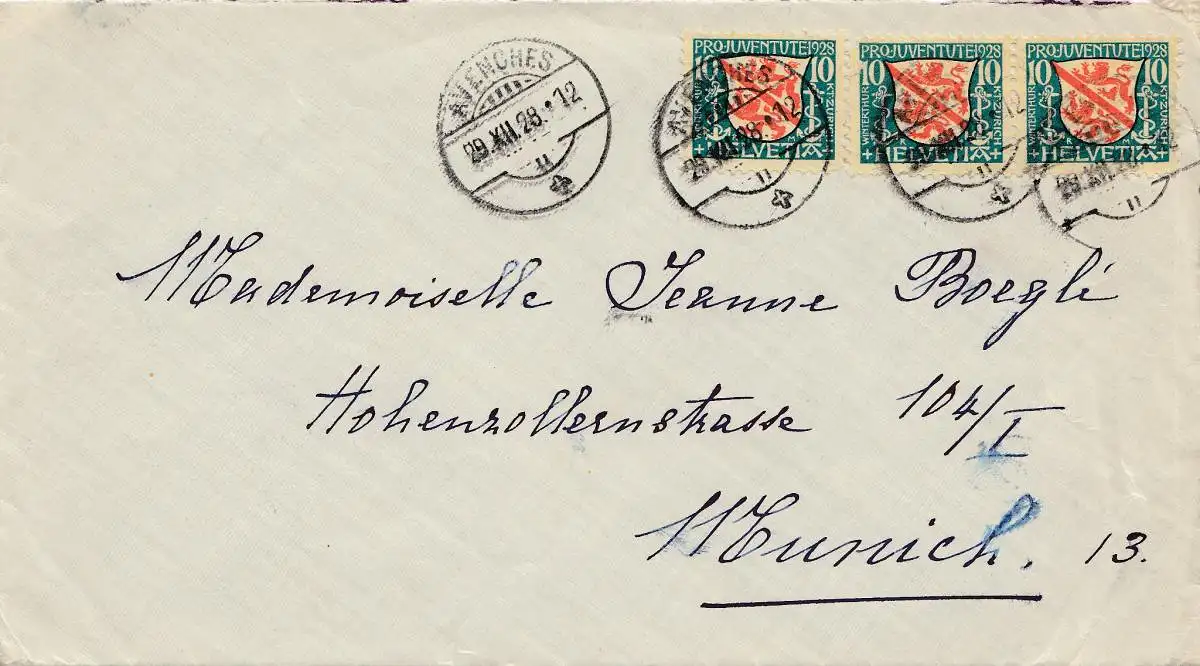 AVENCHES
29.XII.28.·12
PRO JUVENTUTE 1928
10
WINTERTHUR
KT. ZÜRICH
+ HELVETIA +
AVENCHES
29.XII.28.·12
PRO JUVENTUTE 1928
10 10
WINTERTHUR
KT. ZÜRICH
+ HELVETIA
PRO JUVENTUTE 1928
10 10
WINTERTHUR
KT. ZÜRICH
+ HELVETIA +
Mademoiselle Jeanne Boegli
Hohenzollernstrasse 104/I
Munich. 13.